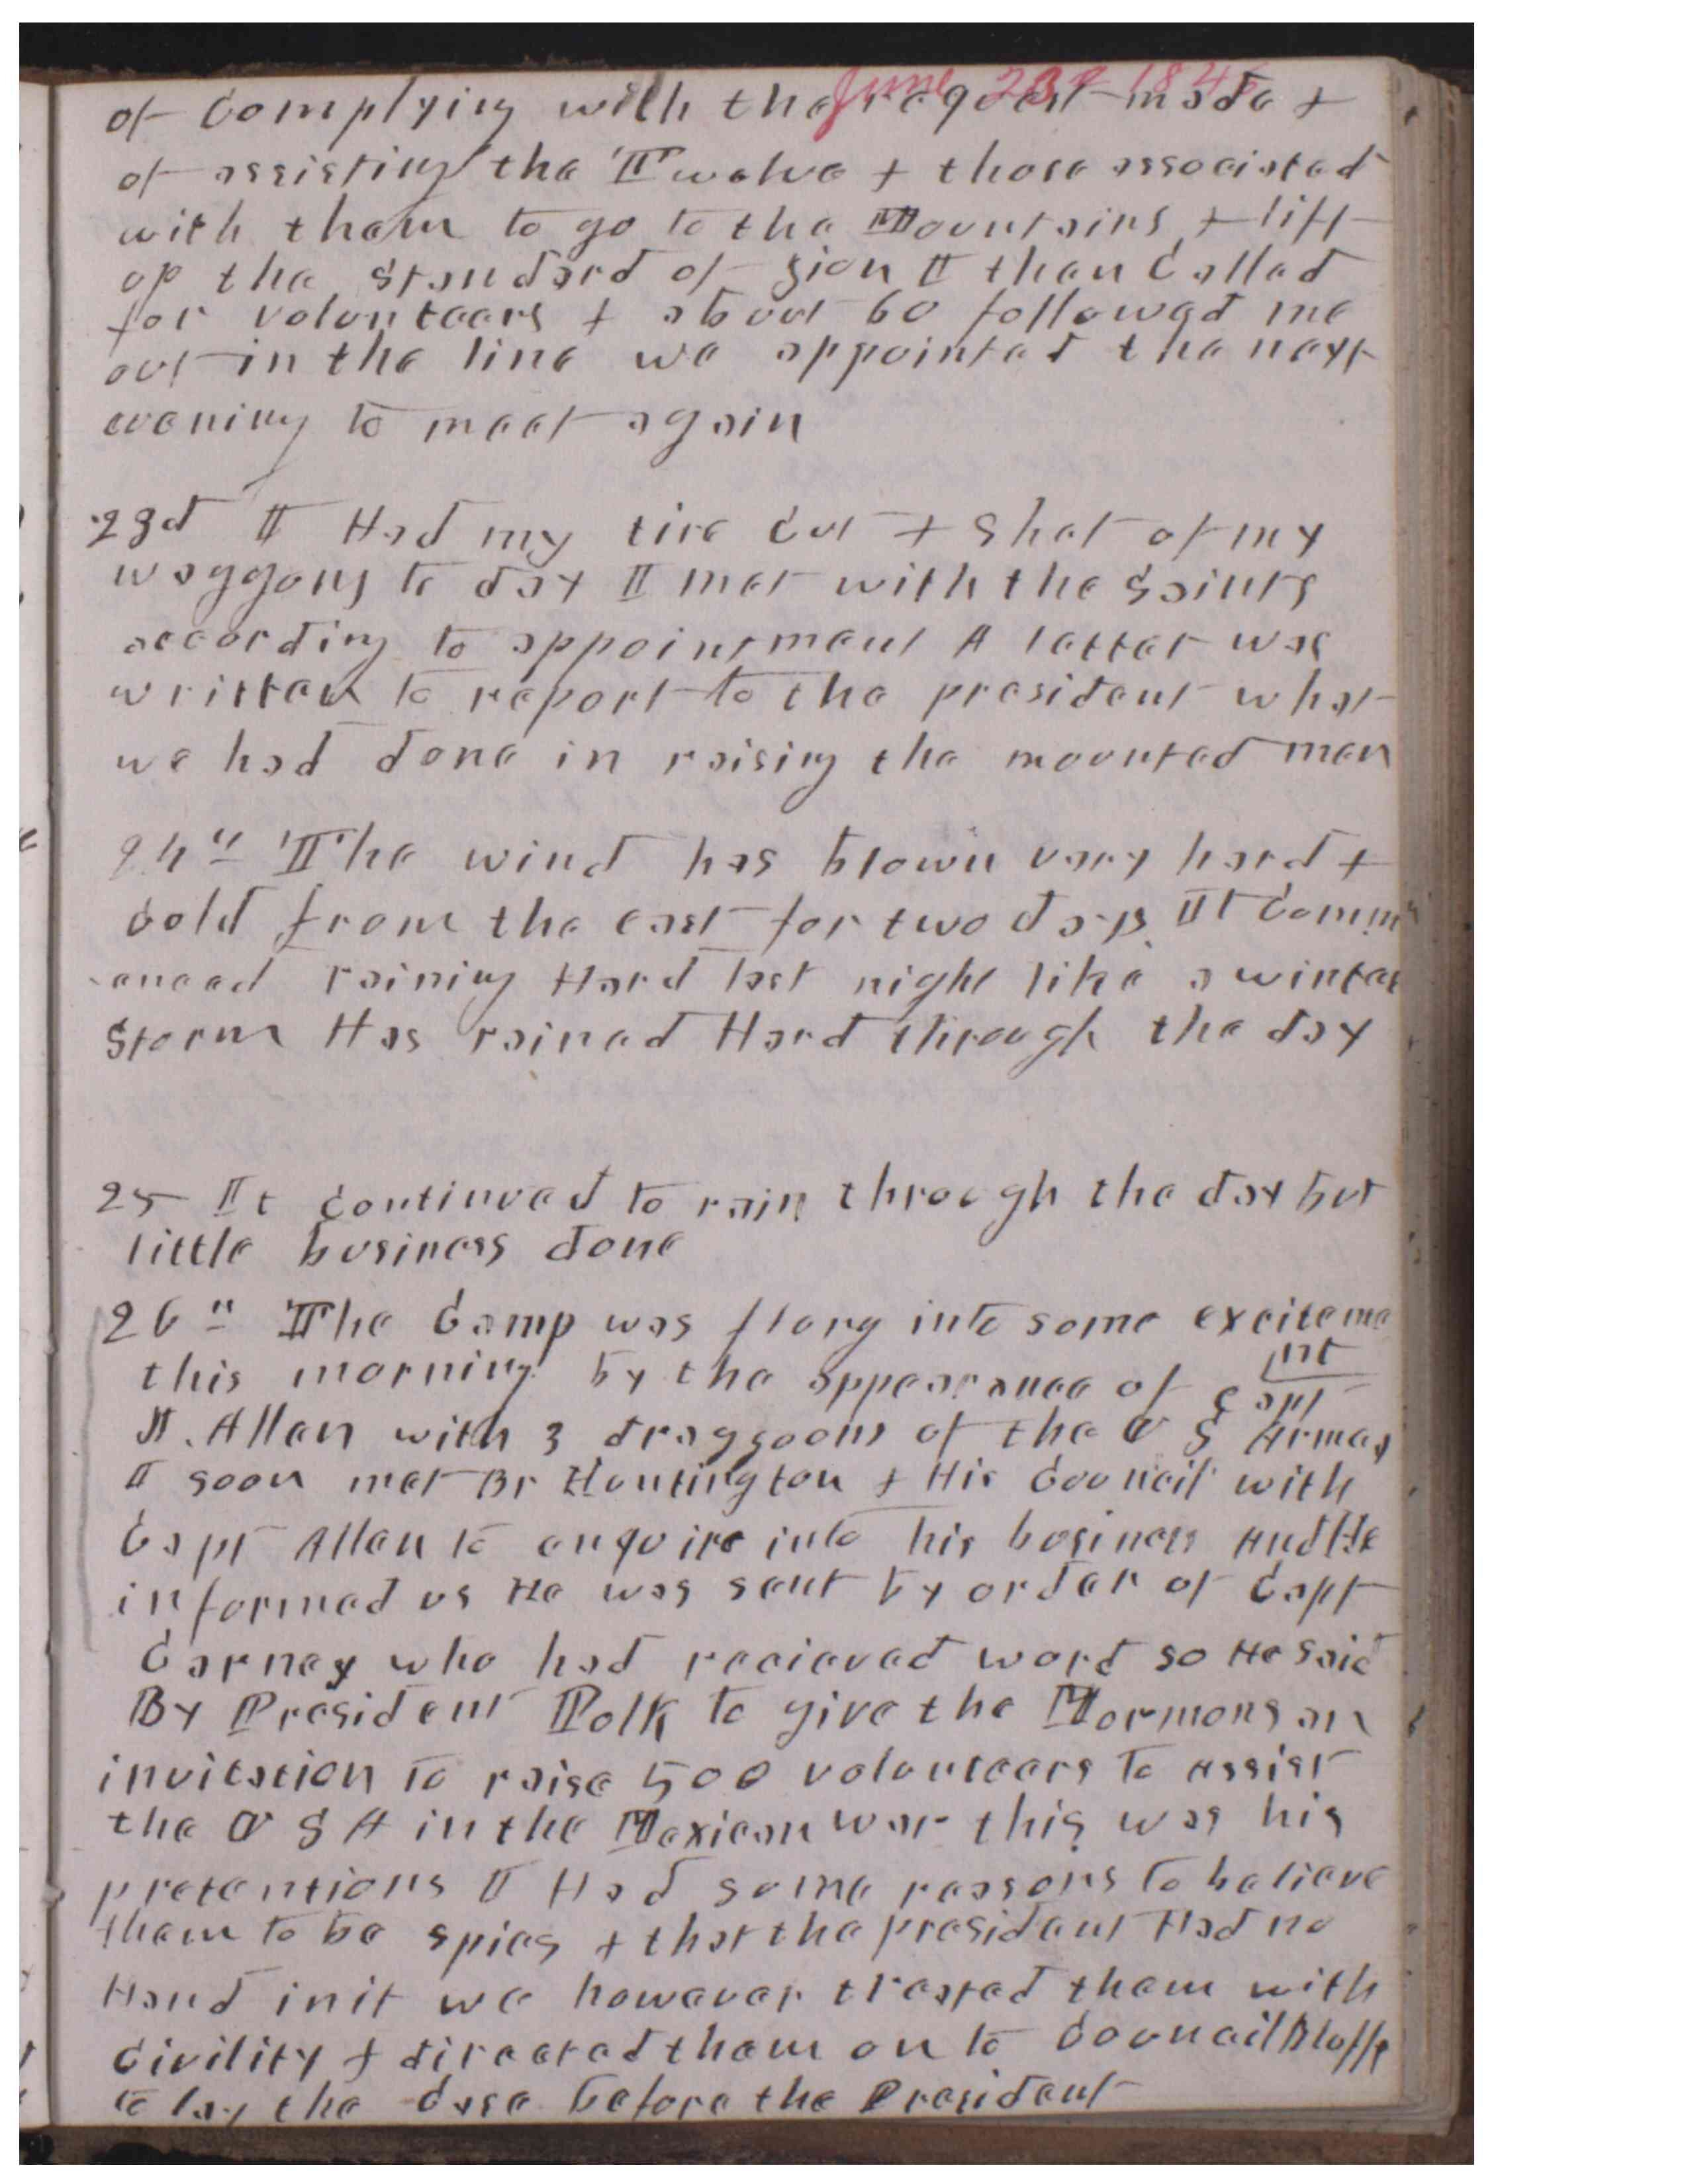 June 23d 1846
of complying with the request made +
of assisting the Twelve + those associated
with them to go to the Mountains + lift
up the standard of Zion I then Called
for volunteers + about 60 followed me
out in the line we appointed the next
evening to meet again
23d I Had my tire Cut + Shet of my
waggons to day I met with the Saints
according to appointment A letter was
written to report to the president what
we had done in raising the mounted men
24th The wind has blown very hard +
Cold from the east for two days It Comm
enced raining Hard last night like a winter
Storm Has rained Hard through the day
25 It Continued to rain through the day but
little business done
26th The Camp was flung into some excitement
this morning by the appearance of Capt
J. Allen with 3 draggoons of the U S Armey
I soon met Br Huntington + His Council with
Capt Allen to enquire into his business And He
informed us He was sent by order of Capt
Carney who had recieved word so He said
By President Polk to give the Mormons an
invitation to raise 500 volunteers to Assist
the U S A in the Mexican war this was his
pretentions I Had some reasons to believe
them to be spies + that the president Had no
Hand in it we however treated them with
Civility + directed them on to Council Bluffs
to lay the Case before the President